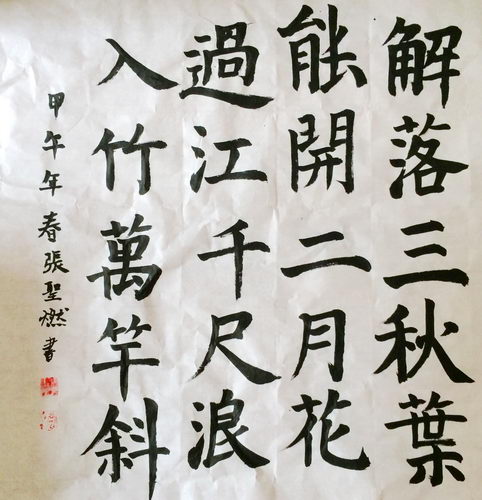 解落三秋葉
能開二月花
過江千尺浪
入竹萬竿斜
甲午年春張聖燃書